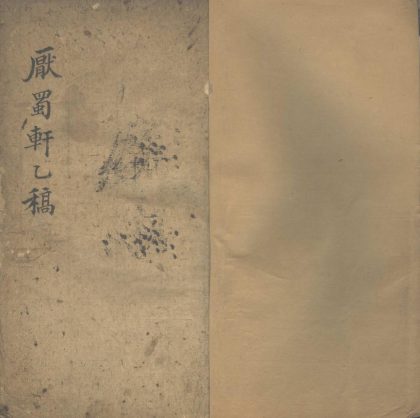 厭蜀軒乙稿